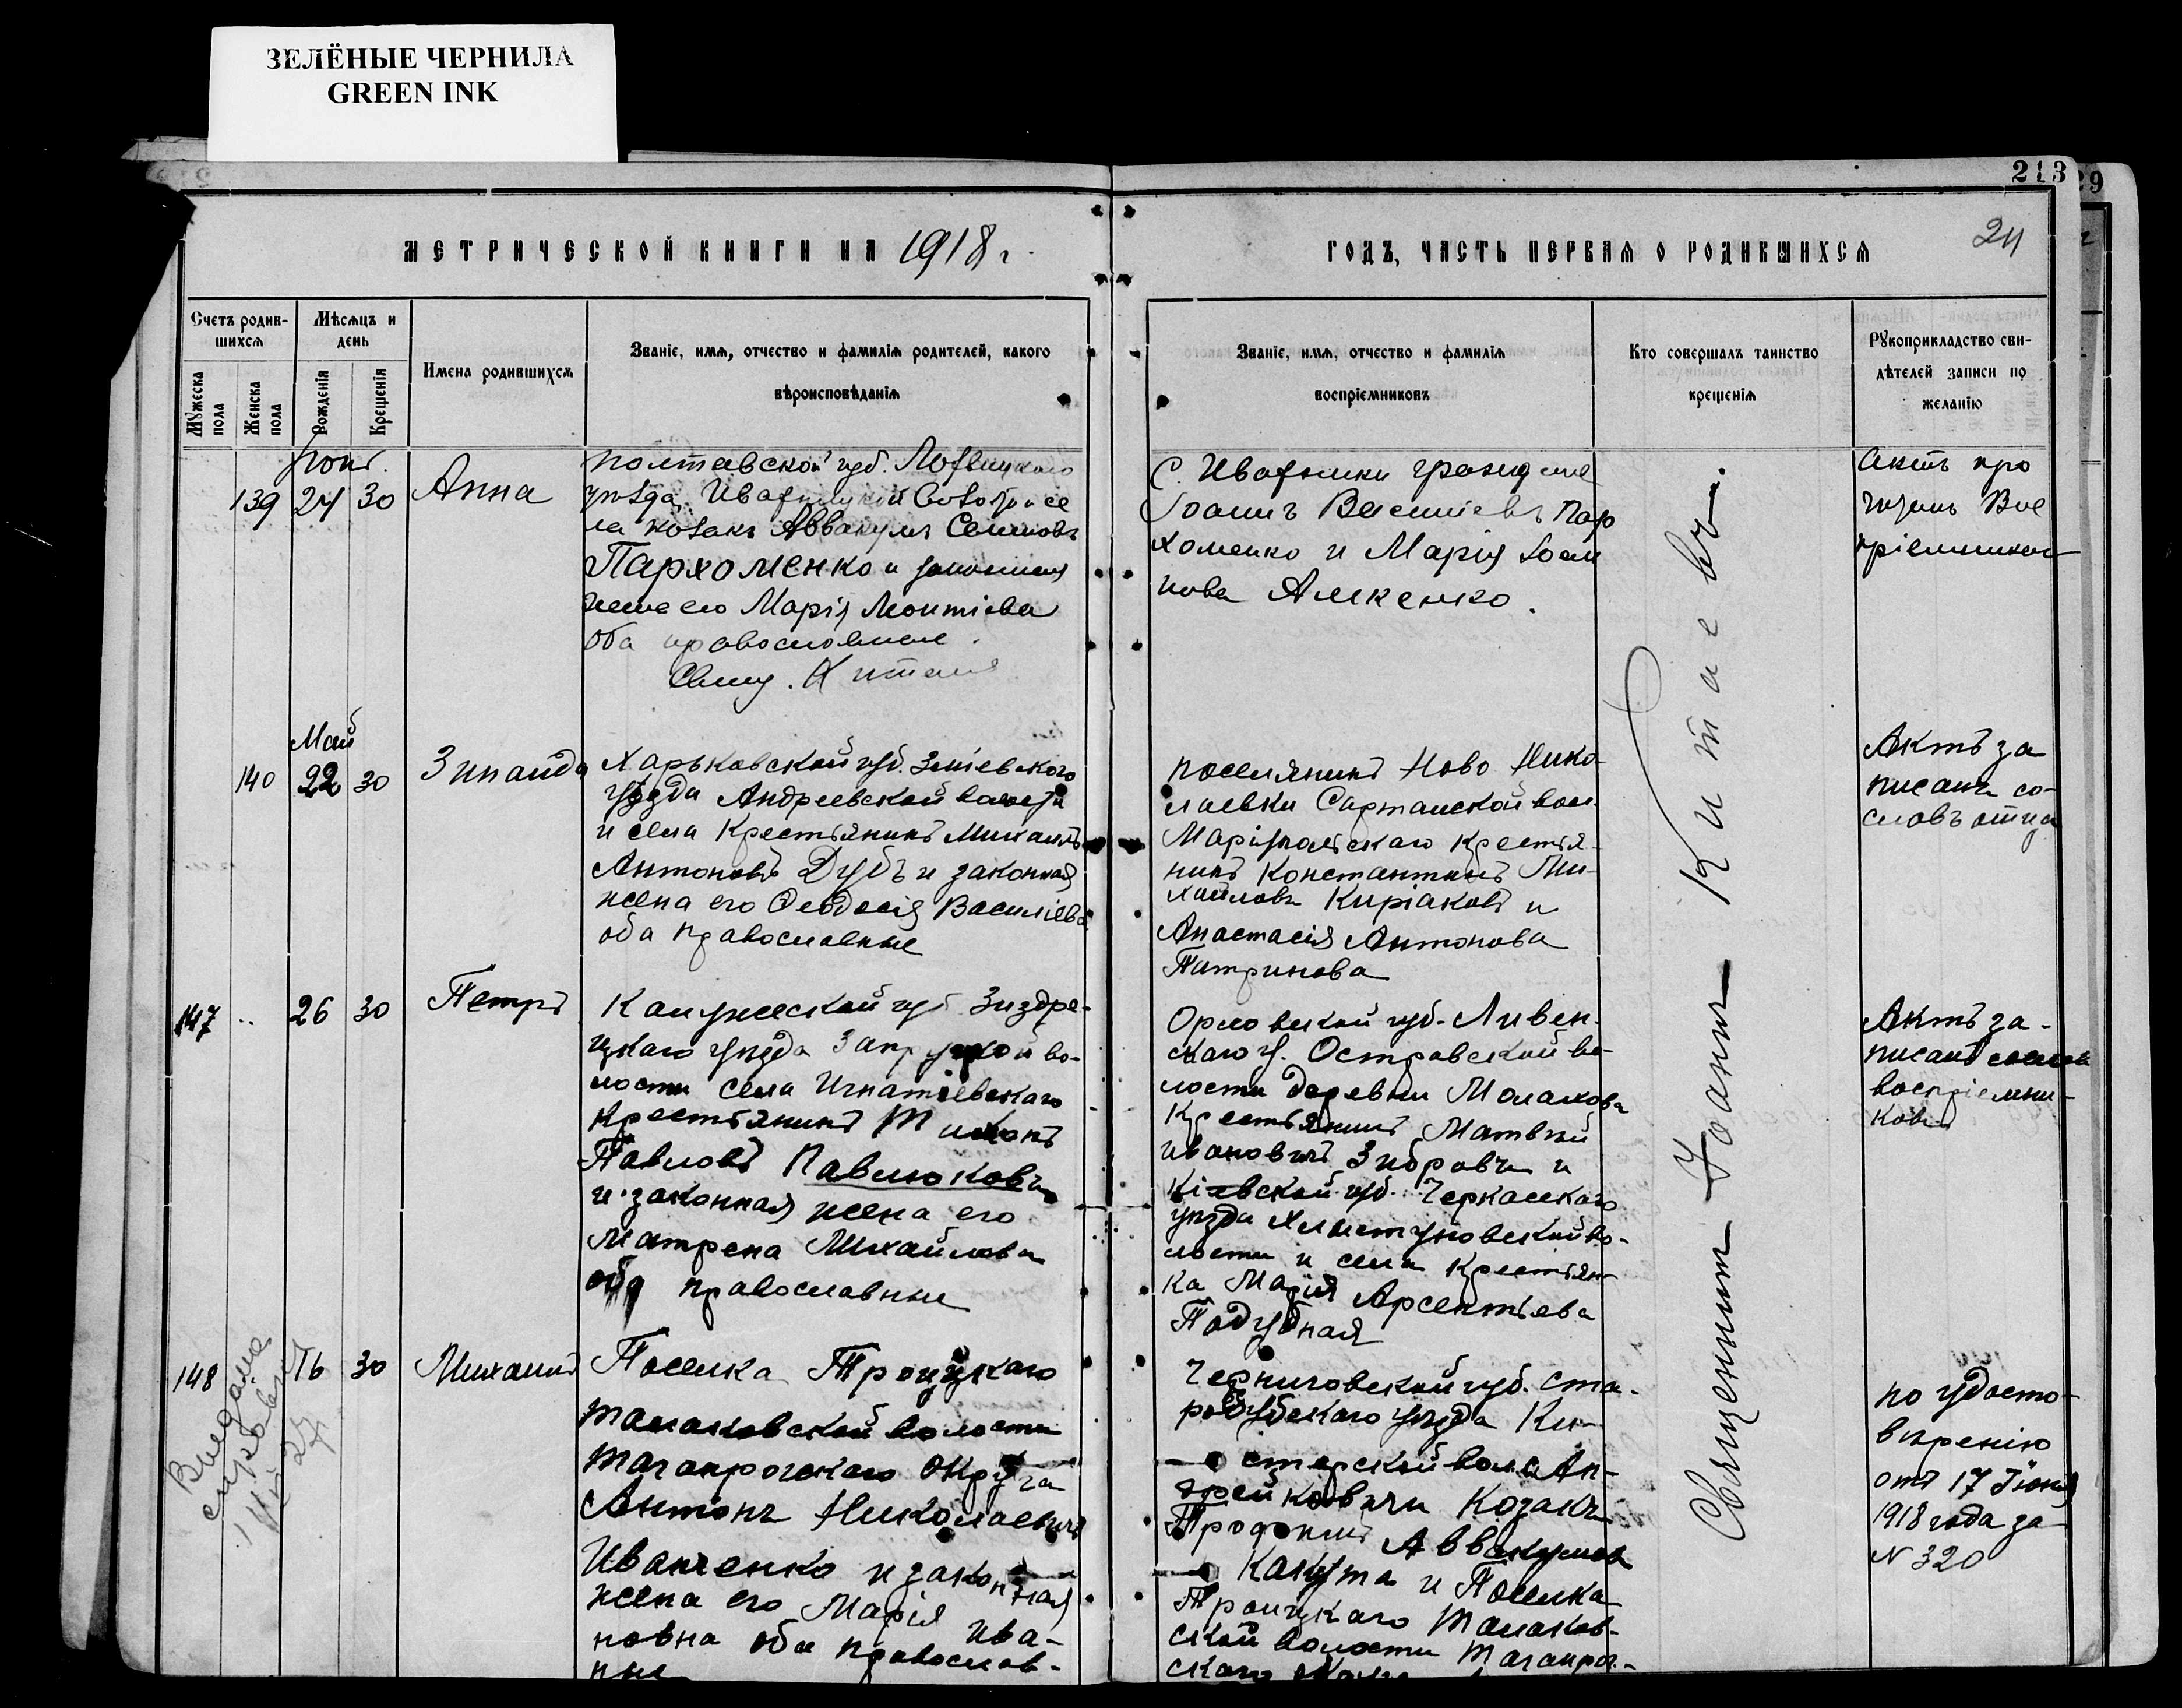 ЗЕЛЁНЫЕ ЧЕРНИЛА
GREEN INK
213
29
МЕТРИЧЕСКОЙ КНИГИ НА 1918 г.
ГОДЪ, ЧАСТЬ ПЕРВАЯ О РОДИВШИХСЯ
Счетъ родив-
шихся
Мѣсяцъ и
день
Мужеска
пола
Женска
пола
Рожденія
Крещенія
Имена родившихся
Званіе, имя, отчество и фамилія родителей, какого
вѣроисповѣданія
Званіе, имя, отчество и фамилія
воспріемниковъ
Кто совершалъ таинство
крещенія
Рукоприкладство сви-
дѣтелей записи по
желанію
139 24 30 Анна
Полтавской губ. Лохвицкаго
уѣзда
ла козакъ Аввакумъ Семиовъ
Пархоменко и законная
жена его Марія Леонтіева
оба православные.
Свящ. Китаевъ
С. граждане
Іоаннъ Василіевъ Пар
хоменко и Марія Іоан
нова
Актъ
Вос
пріемниковъ
Май
140 22 30 Зинаида
Харьковской губ. Зміевского
уѣзда Андреевской волости
и села Крестьянинъ Михаилъ
Антоновъ Дубъ и законная
жена его Ѳеодосія Василіева
оба православные
поселянинъ Ново Нико-
лаевки Сартанской вол.
Маріупольскаго Крестья-
нинъ Константинъ Ми-
хайловъ Киріаковъ и
Анастасія Антонова
Патринова
Актъ за
писанъ со
словъ отца
147 .. 26 30 Петръ
Калужеской губ. Жиздре-
цкаго уѣзда во-
лости села Игнатіевскаго
Крестьянинъ Тихонъ
Павловъ Павлюковъ
и законная жена его
Матрена Михайлова
оба православные
Орловской губ. Ливен-
скаго у. Островской во-
лости деревни Малахова
Крестьянинъ Матвѣй
Ивановичъ и
Кіевской губ. Черкасскаго
уѣзда Хлыстуновской во-
лости и села Крестьян-
ка Марія Арсентьева
Поддубная
Актъ за-
писанъ со словъ
воспріемни-
ковъ
148 16 30 Михаилъ
Выдана
справка
Поселка Троицкаго
волости
Таганрогскаго Округа
Антонъ Николаевичъ
Иванченко и законная
жена его Марія Ива-
новна оба православ-
ные
Черниговской губ. Ста-
родубскаго уѣзда Ки-
стерской вол. с. Ан-
дрейковичи Козакъ
Трофимъ Аввакумовъ
Калута и Поселка
Троицкаго
ской волости Таганрог-
скаго
по удосто-
вѣренію
отъ 17 Іюня
1918 года за
N 320
Священникъ Іоаннъ Китаевъ.